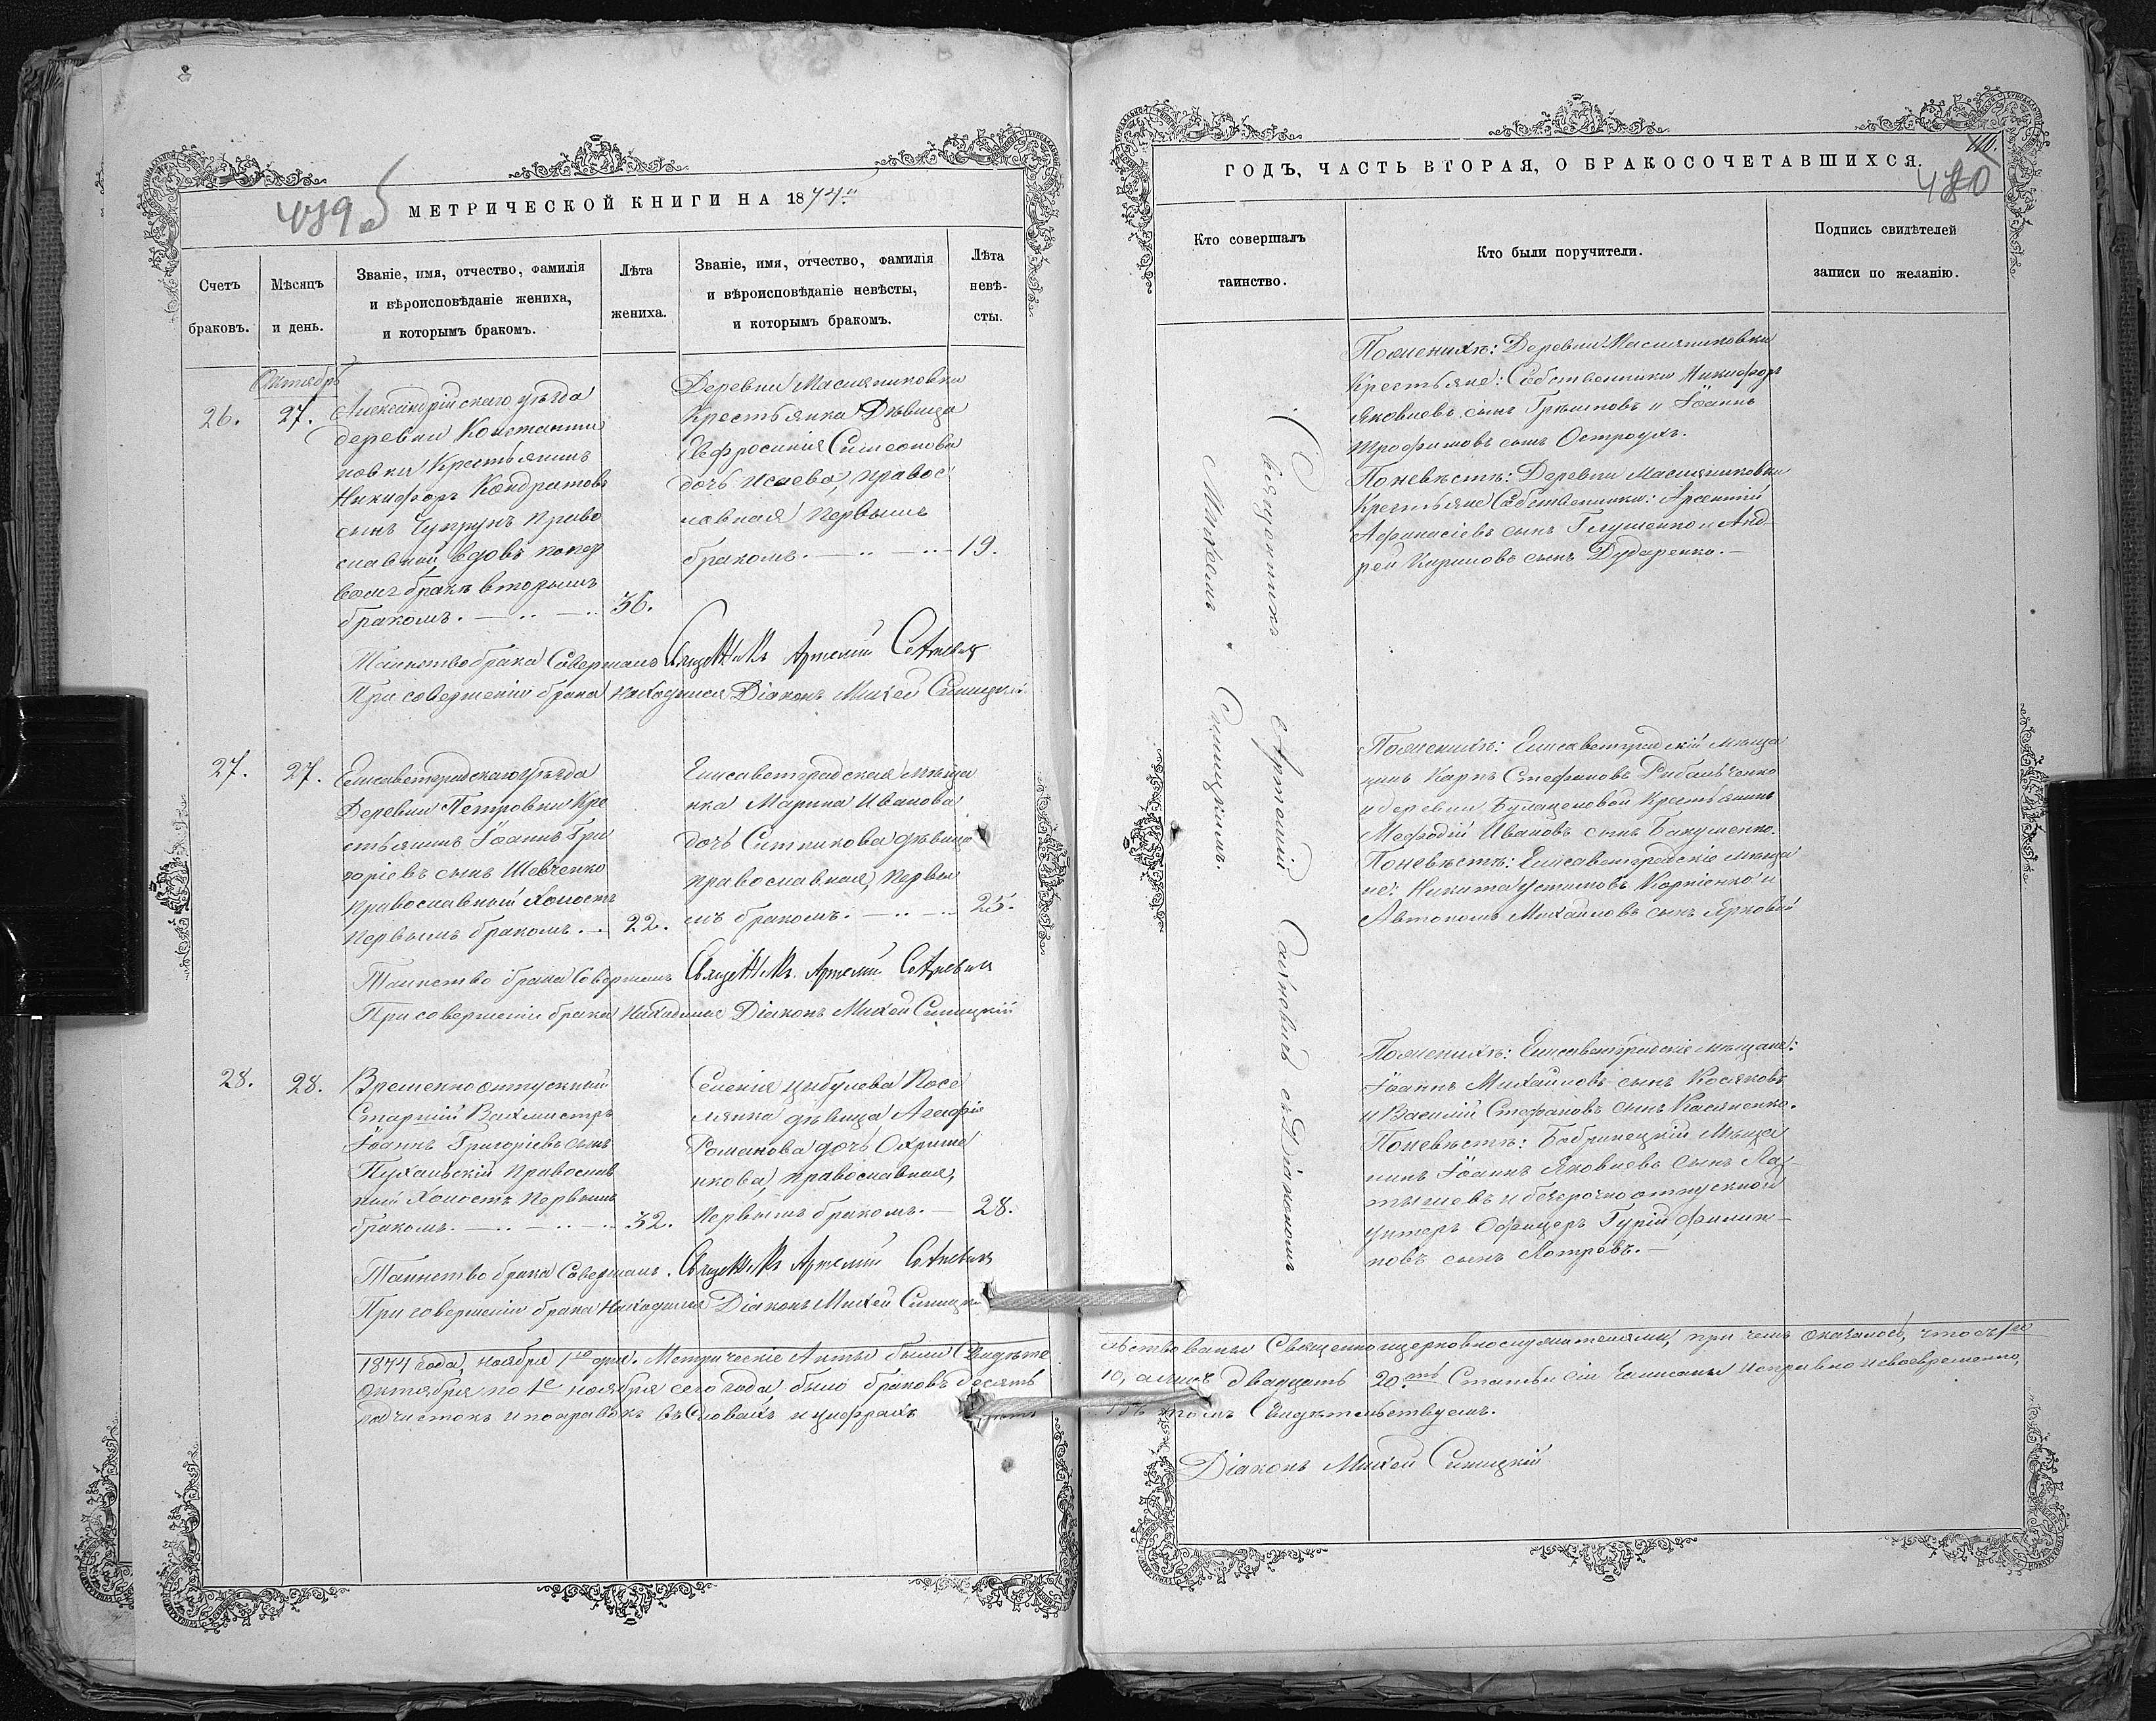 489
МЕТРИЧЕСКОЙ КНИГИ НА 1874
Счетъ
браковъ.
Мѣсяцъ
и день.
Званіе, имя, отчество, фамилія
и вѣроисповѣданіе жениха,
и которымъ бракомъ.
Лѣта
жениха.
Званіе, имя, отчество, фамилія
и вѣроисповѣданіе невѣсты,
и которымъ бракомъ.
Лѣта
невѣ-
сты.
Октябрь
26.
27.
Александрійскаго уѣзда
деревни Константи
новки Крестьянинъ
Никифоръ Кондратовъ
сынъ Чупрунъ право
славный, вдовъ по пер
вомъ бракѣ вторымъ
бракомъ.
36.
Деревни Масляниковки
Крестьянка Дѣвица
Евфросинія Симеонова
дочь Исаева, правос
лавная первымъ
бракомъ.
19.
Таинство брака Совершалъ Священникъ Артемій Саткевич
При совершеніи брака находился Діаконъ Михей Синицкій
27.
27.
Елисаветградскаго уѣзда
Деревни Петровки Кре
стьянинъ Іоаннъ Гри
горіевъ сынъ Шевченко
православный холостъ
первымъ бракомъ.
22.
Елисаветградская мѣща
нка Марина Иванова
дочь Ситникова дѣвица
православная, первы
мъ бракомъ.
25.
Таинство брака Совершалъ Священникъ Артемій Саткевич
При совершеніи брака находился Діаконъ Михей Синицкій
28.
28.
Временно отпускной
Старшій Вахмистръ
Іоаннъ Григоріевъ сынъ
Пухальскій Православ
ный Холостъ первымъ
бракомъ.
32.
Селенія Цибулева Посе
лянка дѣвица Агафія
Романова дочь Охрима
нкова, православная,
первымъ бракомъ.
28.
Таинство брака Совершалъ Священникъ Артемій Саткевич
При совершеніи брака находился Діаконъ Михей Синицкій
1874 года, ноября 1го дня. Метрическіе Акты были Свидѣте
Октября по 1е ноября сего года, было браковъ десять
подчистокъ и поправокъ въ Словахъ и цифрахъ
ГОДЪ, ЧАСТЬ ВТОРАЯ, О БРАКОСОЧЕТАВШИХСЯ.
Кто совершалъ
таинство.
Кто были поручители.
Подпись свидѣтелей
записи по желанію.
Священникъ Артемій Сатковичъ съ Діакономъ
Михеемъ Синицкимъ.
По женихѣ: Деревни Масляниковки
Крестьяне: Собственники Никифоръ
Яковлевъ сынъ Грѣшновъ и Іоаннъ
Трофимовъ сынъ Остроухъ.
По невѣстѣ: Деревни Масляниковки
Крестьяне Собственники: Арсентій
Афанасіевъ сынъ Глушенко и Анд-
рей Кириловъ сынъ Дударенко.
По женихѣ: Елисаветградскій мѣща
нинъ Карпъ Стефановъ Рибальченко
и деревни Булацеловой Крестьянинъ
Мефодій Ивановъ сынъ Бакушенко.
По невѣстѣ: Елисаветградскіе мѣща
не: Никита Устиновъ Корніенко и
Автономъ Михайловъ сынъ Ярковой
По женихѣ: Елисаветградскіе мѣщане:
Іоаннъ Михайловъ сынъ Косяковъ
и Василій Стефановъ сынъ Касяненко.
По невѣстѣ: Бобринецкій Мѣща
нинъ Іоаннъ Яковлевъ Сынъ Ла-
тышевъ и безсрочно отпускной
Унтеръ Офицеръ Гурій Филип-
повъ сынъ
ствованы Священно и церковнослужителями, при чемъ оказалось, что съ 1го
10, а лицъ двадцать 20.ть Статьи сіи записаны исправно и своевременно,
въ томъ Свидѣтельствуемъ.
Діаконъ Михей Синицкій